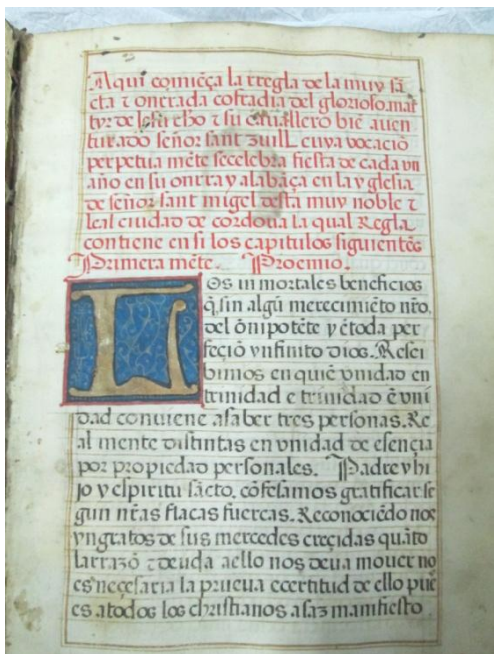 Aqui comiẽça la rregla de la muy sã
cta τ onrrada cofradia del glorioso mar
tyr de ihũ xp̃o τ su cauallero biẽ auen
turado señor sant zuill cuya vocaciõ
perpetua mẽte se celebra fiesta de cada vn
año en su onrra y alabãça en la yglesia
de señor sant migel desta muy noble τ
leal ciudad de cordoua la qual Regla
contiene en si los capitulos siguientes
Primera mẽte. Proemio.
LOS in mortales beneficios
q̃ sin algũ merecimiẽto nr̃o.
del õnipotẽte y ẽ toda per
feçiõ ynfinito dios. Resci
bimos en quiẽ vnidad en
trinidad e trinidad ẽ vni
dad conuiene a saber tres personas. Re
al mente distintas en vnidad de esençia
por propiedad personales. Padre y hi
jo y espiritu sãcto. cõfesamos gratificar se
gun nr̃as flacas fuercas. Reconociẽdo nos
yngratos de sus mercedes creçidas quãto
la rrazõ τ deuda a ello nos deua mouer no
es neçesaria la prueua ecertitud de ello pue
es a todos los christianos asaz manifiesto